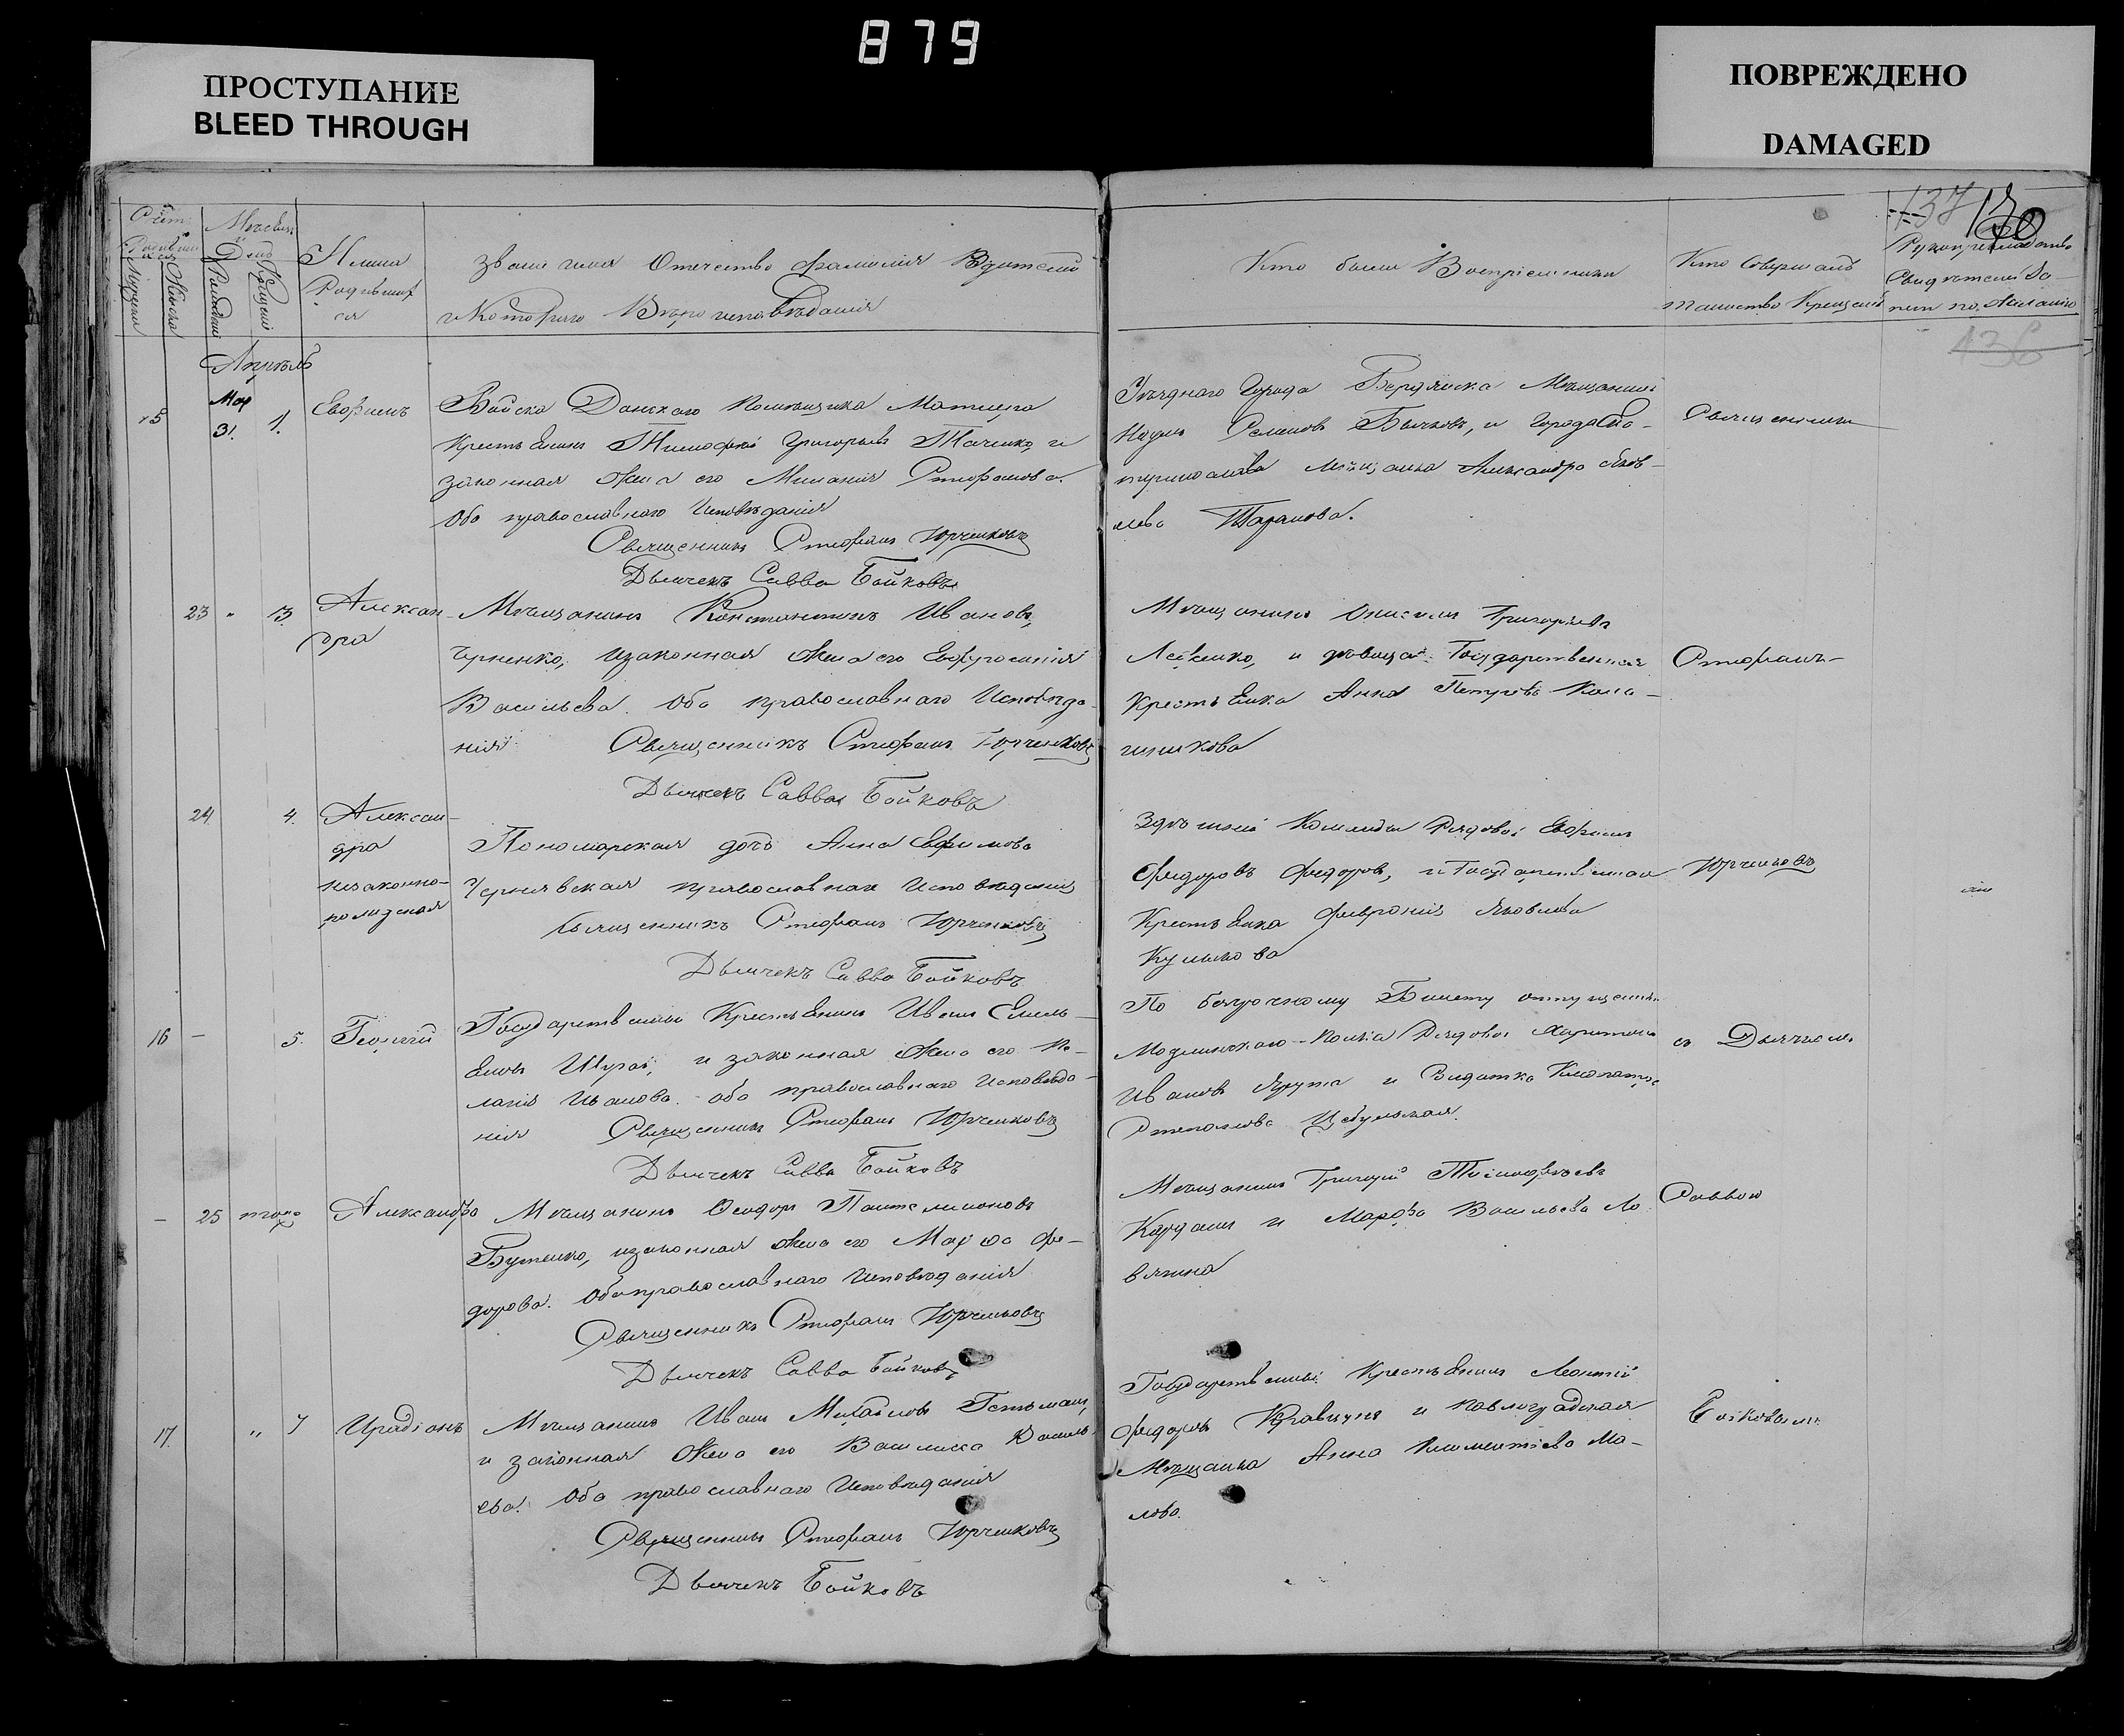 879
ПРОСТУПАНИЕ
BLEED THROUGH
ПОВРЕЖДЕНО
DAMAGED
137 130
136
Счетъ
Мѣсяцъ
День
Имена
Родивших
ся
Званіе имя Отечество фамилія Родителей
и Котораго Вѣроисповѣданія
Кто были Воспріемники
Кто Совершалъ
таинство Крещенія
Апрѣль
15
Мар
31. 1.
Евфимъ
Войска Донскаго помѣщика Мартина
крестьянинъ Тимофей Григорьевъ Ткаченко, и
законная жена его Меланія Стефанова.
Оба православнаго Исповѣданія
Священникъ Стефанъ Юрченковъ
Дьячекъ Савва Бойковъ
Уѣзднаго Города Бердянска Мѣщанинъ
Наумъ Семеновъ Бычковъ, и Города
мѣщанка Александра Яков-
лева Таранова.
Священникъ
23 " 3.
Алексан
дра
Мѣщанинъ Константинъ Ивановъ
Черненко, и законная жена его Евфросинія
Васильева. Оба православнаго Исповѣда-
нія Священникъ Стефанъ Юрченковъ
Дьячекъ Савва Бойковъ
Мѣщанинъ Онисимъ Григорьевъ
Левенко, и дѣвица Государственная
Крестьянка Анна Петрова Кала-
шникова
Стефанъ
24. 4.
Алексан-
дра
незаконно-
рожденная
Пономарская дочь Анна Ефимова
Чернявская православная Исповѣданія
Священникъ Стефанъ Юрченковъ
Дьячекъ Савва Бойковъ
Здѣшней Команды Рядовой Ефимъ
Федоровъ Федоровъ, и Государственная
Крестьянка Февронія Яковлева
Куликова
Юрченковъ
16 - 5.
Георгій
Государственный Крестьянинъ Иванъ Емель-
яновъ Шурай, и законная жена его Пе-
лагія Иванова. Оба православнаго Исповѣда-
нія Священникъ Стефанъ Юрченковъ
Дьячекъ Савва Бойковъ
По безсрочному Билету отпущенный
Модлинскаго полка Рядовой Харитонъ
Ивановъ Ярута и Солдатка Клеопатра
Степанова Цебульская.
съ Дьячкомъ
- 25
Александра
Мѣщанинъ Феодоръ Пантелимоновъ
Бутенко, и законная жена его Марфа Фе-
дорова. Оба православнаго Исповѣданія
Священникъ Стефанъ Юрченковъ
Дьячекъ Савва Бойковъ
Мѣщанинъ Григорій Тимофѣевъ
Кардашъ и Марфа Васильева Ло
вягина
Саввою
17. " 7
Иродіонъ
Мѣщанинъ Иванъ Михайловъ Гетьманъ,
и законная жена его Василиса Василь
ева. Оба православнаго Исповѣданія
Священникъ Стефанъ Юрченковъ
Дьячекъ Бойковъ
Государственный Крестьянинъ Леонтій
Федоровъ Кравцунъ и Павлоградская
Мѣщанка Анна Климентіева Ма-
лова.
Бойковымъ